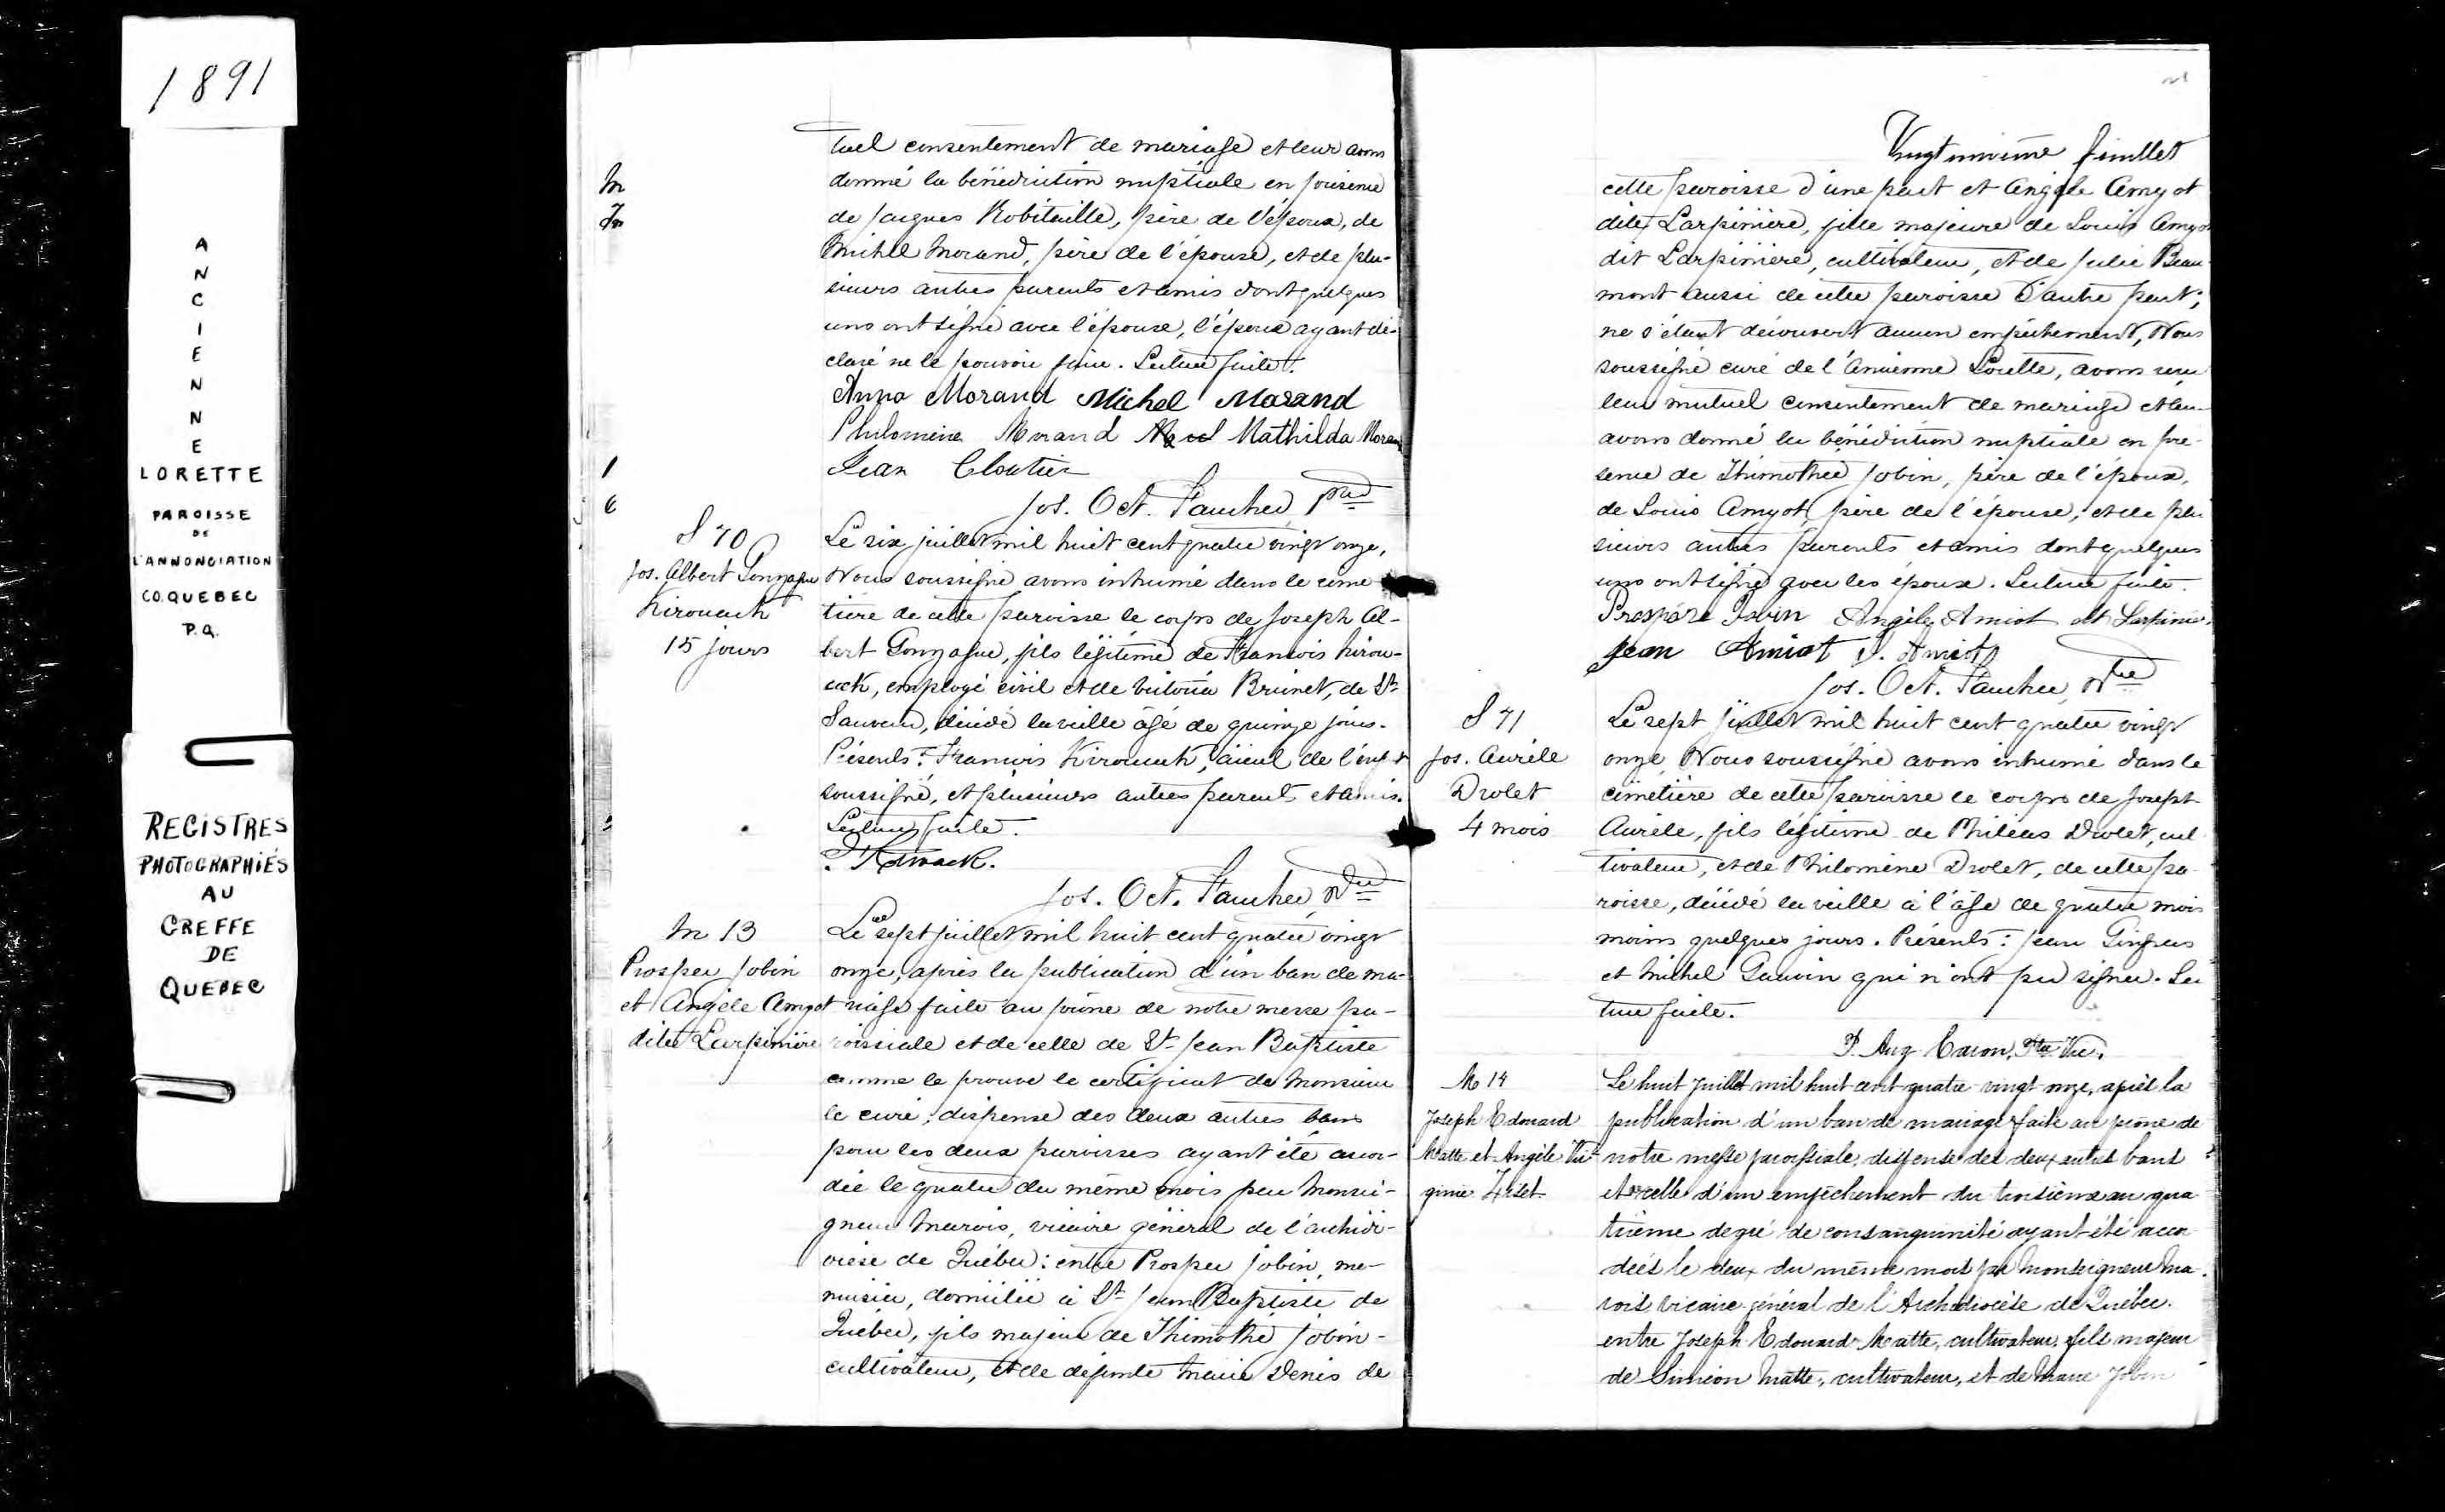 1891
ANCIENNE
LORETTE
PAROISSE
DE
L'ANNONCIATION
CO. QUEBEC
P.Q.
REGISTRES
PHOTOGRAPHIÉS
AU
GREFFE
DE
QUEBEC
tuel consentement de mariage et leur avons
donné la bénédiction nuptiale en présence
de Jacques Robitaille, père de l'époux, de
Michel Morand, père de l'épouse, et de plu-
sieurs autres parents et amis dont quelques
uns ont signé avec l'épouse, l'époux ayant dé-
claré ne le pouvoir faire. Lecture faite.
Anna Morand Michel Morand
Philomène Morand Mathilda Morand
Jean Cloutier
Jos. Oct. Faucher, Ptre
S 70
Jos. Albert Gonzague
Kirouack
15 jours
Le six juillet mil huit cent quatre vingt onze,
Nous soussigné avons inhumé dans le cime
tière de cette paroisse le corps de Joseph Al-
bert Gonzague, fils légitime de François Kirou-
ack, employé civil et de Victoria Brunet, de St
Sauveur, décédé la veille âgé de quinze jours.
Présents: François Kirouack, aïeul de l'enft
soussigné, et plusieurs autres parents et amis.
Lecture faite.
F. Kirouack.
Jos. Oct. Faucher, Ptre
M 13
Prosper Jobin
et Angèle Amyot
dite Larpinière
Le sept juillet mil huit cent quatre vingt
onze, après la publication d'un ban de ma-
riage faite au prône de notre messe pa-
roissiale et de celle de St Jean Baptiste
comme le prouve le certificat de Monsieur
le curé, dispense des deux autres bans
pour les deux paroisses ayant été accor-
dée le quatre du même mois par Monsei-
gneur Marois, vicaire général de l'archidi-
ocèse de Québec: entre Prosper Jobin, me-
nuisier, domicilié à St Jean Baptiste de
Québec, fils majeur de Thimothé Jobin-
cultivateur, et de défunte Marie Denis de
Vingtunième feuillet
cette paroisse d'une part et Angèle Amyot
dite Larpinière, fille majeure de Louis Amyot
dit Larpinière, cultivateur, et de Julie Beau-
mont aussi de cette paroisse d'autre part;
ne s'étant découvert aucun empêchement, Nous
soussigné curé de l'Ancienne Lorette, avons reçu
leur mutuel consentement de mariage et leur
avons donné la bénédiction nuptiale en pré-
sence de Thimothée Jobin, père de l'époux,
de Louis Amyot, père de l'épouse, et de plu
sieurs autres parents et amis dont quelques
uns ont signé avec les époux. Lecture faite.
Prospère Jobin Angèle Amiot dt Larpinie.
Jean Amiot Amiot
Jos. Oct. Faucher, Ptre
S 71
Jos. Aurèle
Drolet
4 mois
Le sept juillet mil huit cent quatre vingt
onze, Nous soussigné avons inhumé dans le
cimetière de cette paroisse le corps de Joseph
Aurèle, fils légitime de Philéas Drolet, cul
tivateur, et de Philomène Drolet, de cette pa
roisse, décédé la veille à l'âge de quatre mois
moins quelques jours. Présents: Jean Gingras
et Michel Gauvin qui n'ont pu signer. Lec
ture faite.
P. Aug. Caron, Ptre Vic.
M 14
Joseph Edouard
Matte et Angèle Vir
ginie
Le huit juillet mil huit cent quatre-vingt onze, après la
publication d'un ban de mariage faite au prône de
notre messe paroissiale, dispense des deux autres bans
et celle d'un empêchement du troisième au qua
trième degré de consanguinité ayant été accor
dées le deux du même mois par Monseigneur Ma-
rois vicaire-général de l'Archidiocèse de Québec.
entre Joseph Edouard Matte, cultivateur, fils majeur
de Siméon Matte, cultivateur, et de Marie Jobin